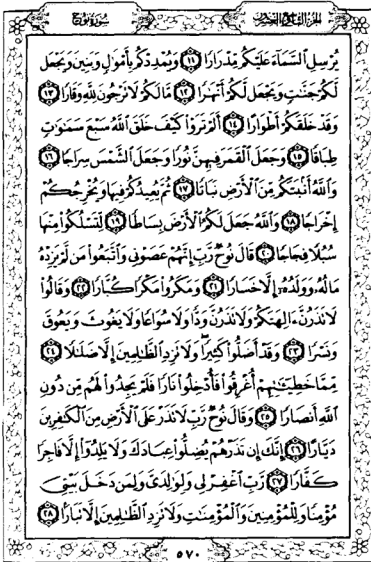 سُورَةُ نُوحٍ الجزء التاسع والعشرون
يُرْسِلِ ٱلسَّمَآءَ عَلَيْكُم مِّدْرَارًا ١١ وَيُمْدِدْكُم بِأَمْوَٰلٍ وَبَنِينَ وَيَجْعَل
لَّكُمْ جَنَّٰتٍ وَيَجْعَل لَّكُمْ أَنْهَٰرًا ١٢ مَّا لَكُمْ لَا تَرْجُونَ لِلَّهِ وَقَارًا ١٣
وَقَدْ خَلَقَكُمْ أَطْوَارًا ١٤ أَلَمْ تَرَوْا۟ كَيْفَ خَلَقَ ٱللَّهُ سَبْعَ سَمَٰوَٰتٍ
طِبَاقًا ١٥ وَجَعَلَ ٱلْقَمَرَ فِيهِنَّ نُورًا وَجَعَلَ ٱلشَّمْسَ سِرَاجًا ١٦
وَٱللَّهُ أَنۢبَتَكُم مِّنَ ٱلْأَرْضِ نَبَاتًا ١٧ ثُمَّ يُعِيدُكُمْ فِيهَا وَيُخْرِجُكُمْ
إِخْرَاجًا ١٨ وَٱللَّهُ جَعَلَ لَكُمُ ٱلْأَرْضَ بِسَاطًا ١٩ لِّتَسْلُكُوا۟ مِنْهَا
سُبُلًا فِجَاجًا ٢٠ قَالَ نُوحٌ رَّبِّ إِنَّهُمْ عَصَوْنِى وَٱتَّبَعُوا۟ مَن لَّمْ يَزِدْهُ
مَالُهُۥ وَوَلَدُهُۥٓ إِلَّا خَسَارًا ٢١ وَمَكَرُوا۟ مَكْرًا كُبَّارًا ٢٢ وَقَالُوا۟
لَا تَذَرُنَّ ءَالِهَتَكُمْ وَلَا تَذَرُنَّ وَدًّا وَلَا سُوَاعًا وَلَا يَغُوثَ وَيَعُوقَ
وَنَسْرًا ٢٣ وَقَدْ أَضَلُّوا۟ كَثِيرًا وَلَا تَزِدِ ٱلظَّٰلِمِينَ إِلَّا ضَلَٰلًا ٢٤
مِّمَّا خَطِيٓـَٰٔتِهِمْ أُغْرِقُوا۟ فَأُدْخِلُوا۟ نَارًا فَلَمْ يَجِدُوا۟ لَهُم مِّن دُونِ
ٱللَّهِ أَنصَارًا ٢٥ وَقَالَ نُوحٌ رَّبِّ لَا تَذَرْ عَلَى ٱلْأَرْضِ مِنَ ٱلْكَٰفِرِينَ
دَيَّارًا ٢٦ إِنَّكَ إِن تَذَرْهُمْ يُضِلُّوا۟ عِبَادَكَ وَلَا يَلِدُوٓا۟ إِلَّا فَاجِرًا
كَفَّارًا ٢٧ رَّبِّ ٱغْفِرْ لِى وَلِوَٰلِدَىَّ وَلِمَن دَخَلَ بَيْتِىَ
مُؤْمِنًا وَلِلْمُؤْمِنِينَ وَٱلْمُؤْمِنَٰتِ وَلَا تَزِدِ ٱلظَّٰلِمِينَ إِلَّا تَبَارًۢا ٢٨
٥٧٠